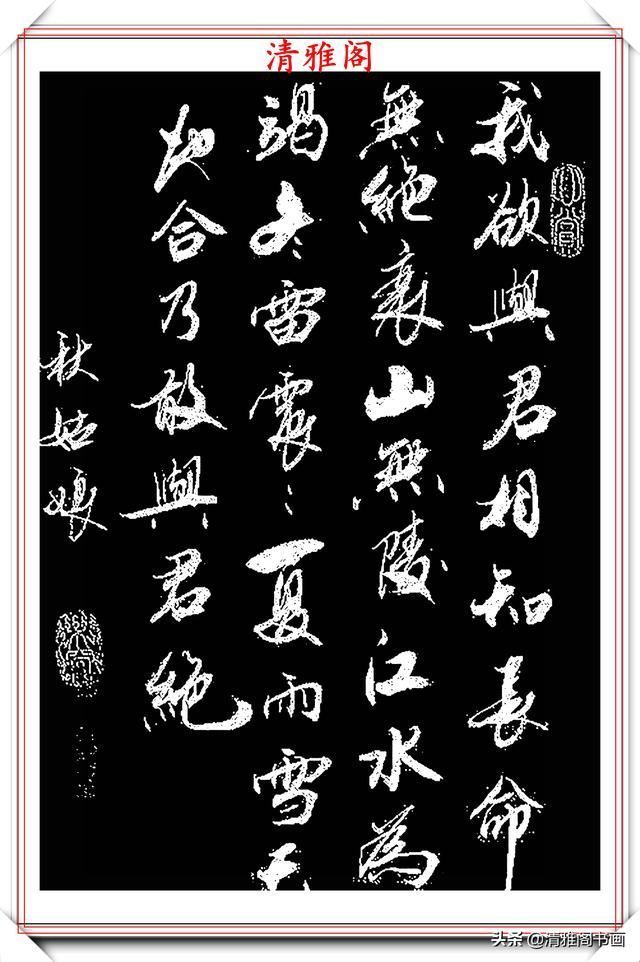 清雅阁
我欲與君相知長命
無絕衰山無陵江水為
竭冬雷震〻夏雨雪天
地合乃敢與君絕
秋姑娘
头条 @清雅阁书画